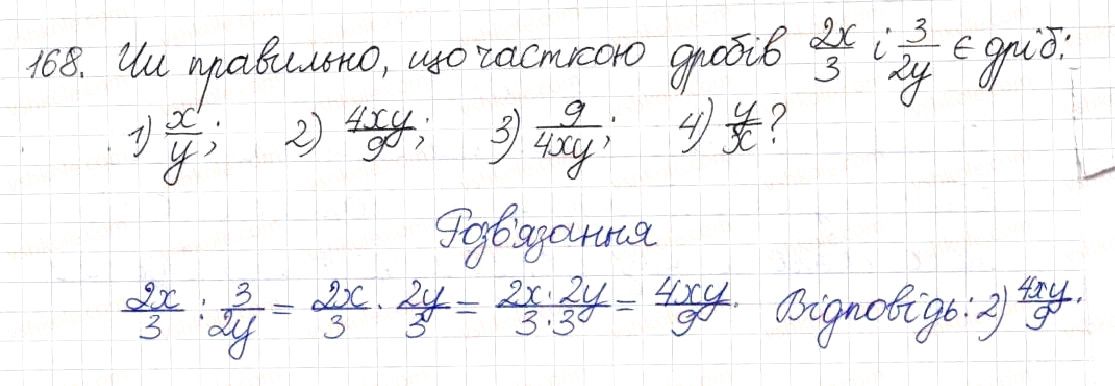 168. Чи правильно, що часткою дробів 2x/3 і 3/2y є дріб:
1) x/y; 2) 4xy/9; 3) 9/4xy; 4) y/x?
Розв'язання
2x/3 : 3/2y = 2x/3 · 2y/3 = 2x·2y/3·3 = 4xy/9. Відповідь: 2) 4xy/9.